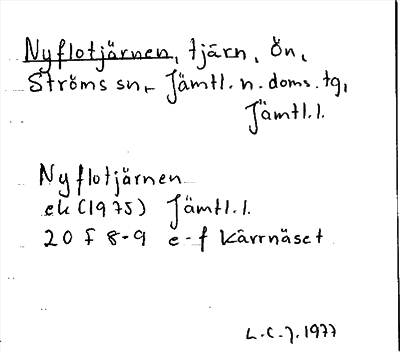 Nyflotjärnen, tjärn, Ön,
Ströms sn, Jämtl. n. doms. tg,
Jämtl. l.
Nyflotjärnen
ek (1975) Jämtl. l.
20 F 8-9 e-f Kärrnäset
L.C.J. 1977